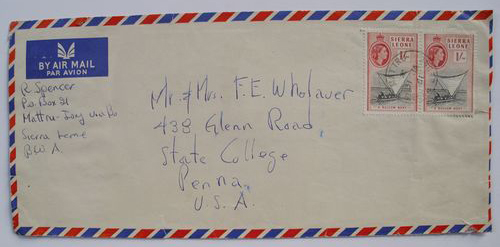 BY AIR MAIL
PAR AVION
R Spencer
P.o. Box 21
Mattru-Jong via Bo
Sierra Leone
BWA.
Mr. & Mrs. F. E. Wholaver
438 Glenn Road,
State College
Penna.
U.S.A.
SIERRA LEONE
1/-
SIERRA LEONE
1/-